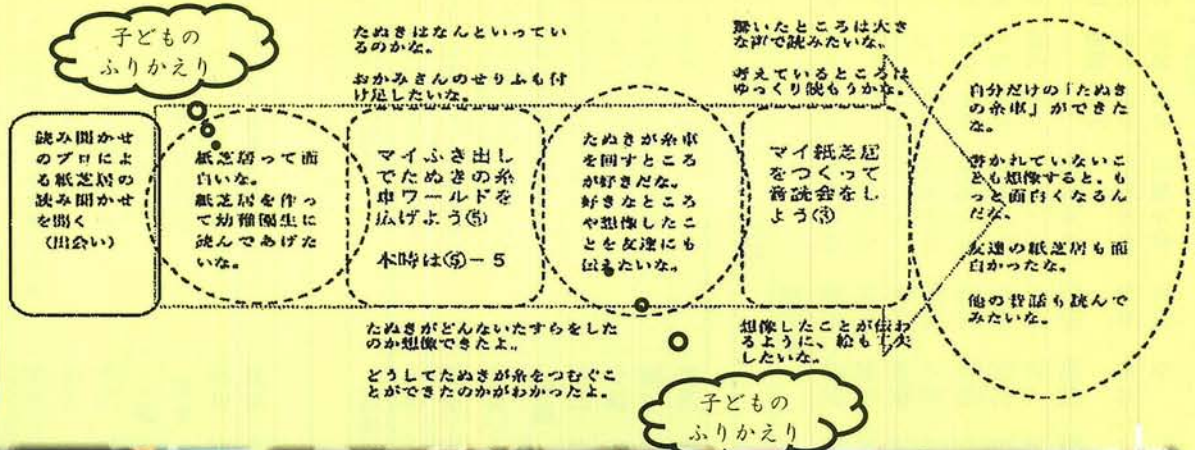 子どもの
ふりかえり
読み聞かせ
のプロによ
る紙芝居の
読み聞かせ
を聞く
（出会い）
紙芝居って面
白いな。
紙芝居を作っ
て幼稚園生に
読んであげた
いな。
たぬきはなんといってい
るのかな。
おかみさんのせりふも付
け足したいな。
マイふき出し
でたぬきの糸
車ワールドを
広げよう⑤
本時は⑤－５
たぬきがどんないたずらをした
のか想像できたよ。
どうしてたぬきが糸をつむぐこ
とができたのかがわかったよ。
たぬきが糸車
を回すところ
が好きだな。
好きなところ
や想像したこ
とを友達にも
伝えたいな。
子どもの
ふりかえり
驚いたところは大き
な声で読みたいな。
考えているところは
ゆっくり読もうかな。
マイ紙芝居
をつくって
音読会をし
よう③
想像したことが伝わ
るように、絵も工夫
したいな。
自分だけの「たぬき
の糸車」ができた
な。
書かれていないこ
とも想像すると、も
っと面白くなるん
だな。
友達の紙芝居も面
白かったな。
他の昔話も読んで
みたいな。